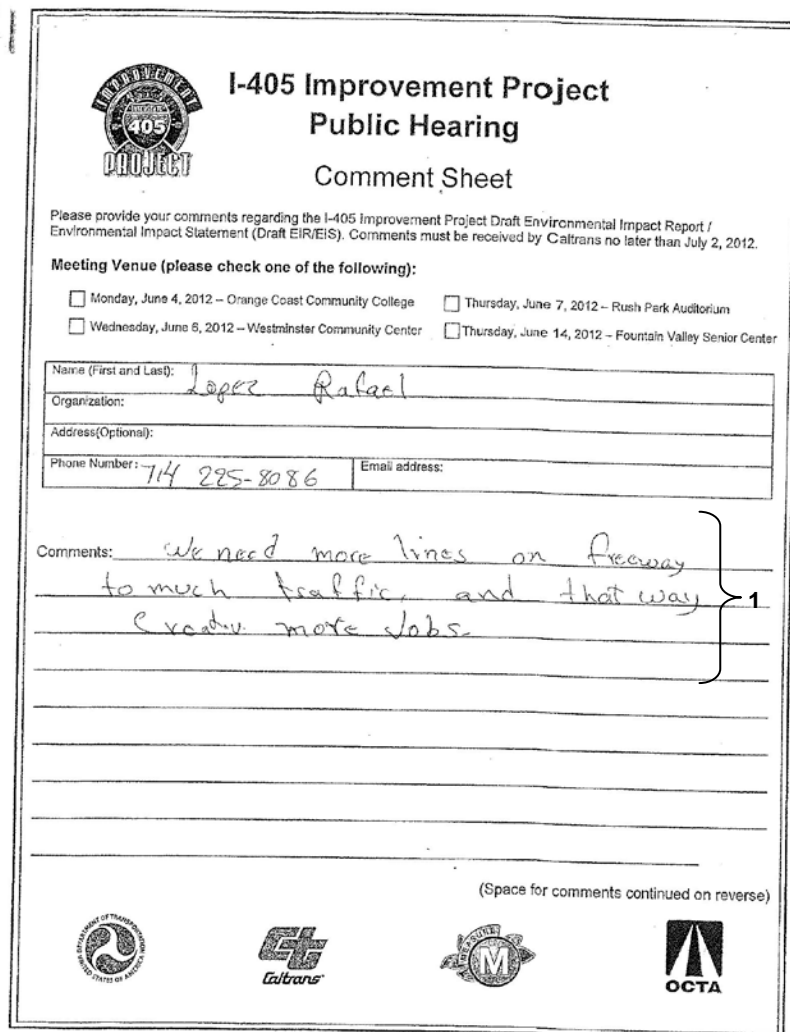 IMPROVEMENT
INTERSTATE
405
PROJECT
I-405 Improvement Project
Public Hearing
Comment Sheet
Please provide your comments regarding the I-405 Improvement Project Draft Environmental Impact Report /
Environmental Impact Statement (Draft EIR/EIS). Comments must be received by Caltrans no later than July 2, 2012.
Meeting Venue (please check one of the following):
Monday, June 4, 2012 – Orange Coast Community College
Thursday, June 7, 2012 – Rush Park Auditorium
Wednesday, June 6, 2012 – Westminster Community Center
Thursday, June 14, 2012 – Fountain Valley Senior Center
Name (First and Last): Lopez Rafael
Organization:
Address(Optional):
Phone Number: 714 225-8086
Email address:
Comments: We need more lines on freeway
to much traffic, and that way
more Jobs.
1
(Space for comments continued on reverse)
DEPARTMENT OF TRANSPORTATION
UNITED STATES OF AMERICA
Ct
Caltrans
MEASURE
M
OCTA